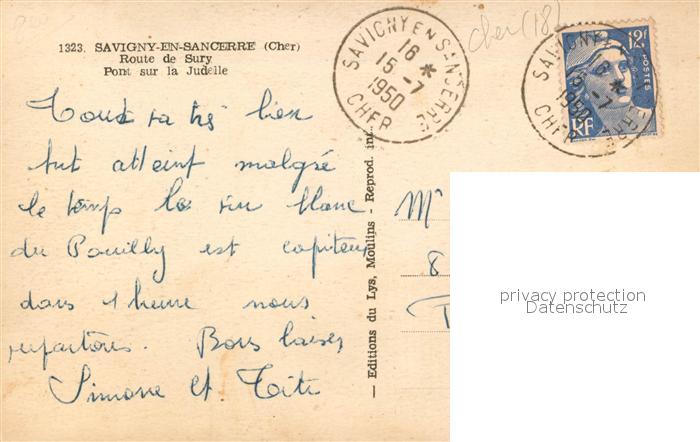 1323. SAVIGNY-EN-SANCERRE (Cher)
Route de Sury
Pont sur la Judelle
SAVIGNY EN SANCERRE
16 *
15 -7
1950
CHER
cher (18)
12F
POSTES
RF
SAVIGNY EN SANCERRE
16 *
15 -7
1950
CHER
Tout va très bien
but atteint malgré
le temps le vin blanc
du Pouilly est capiteux
dans 1 heure nous
repartons. Bons baisers
Simone et
— Editions du Lys, Moulins - Reprod. int.
M
8
privacy protection
Datenschutz